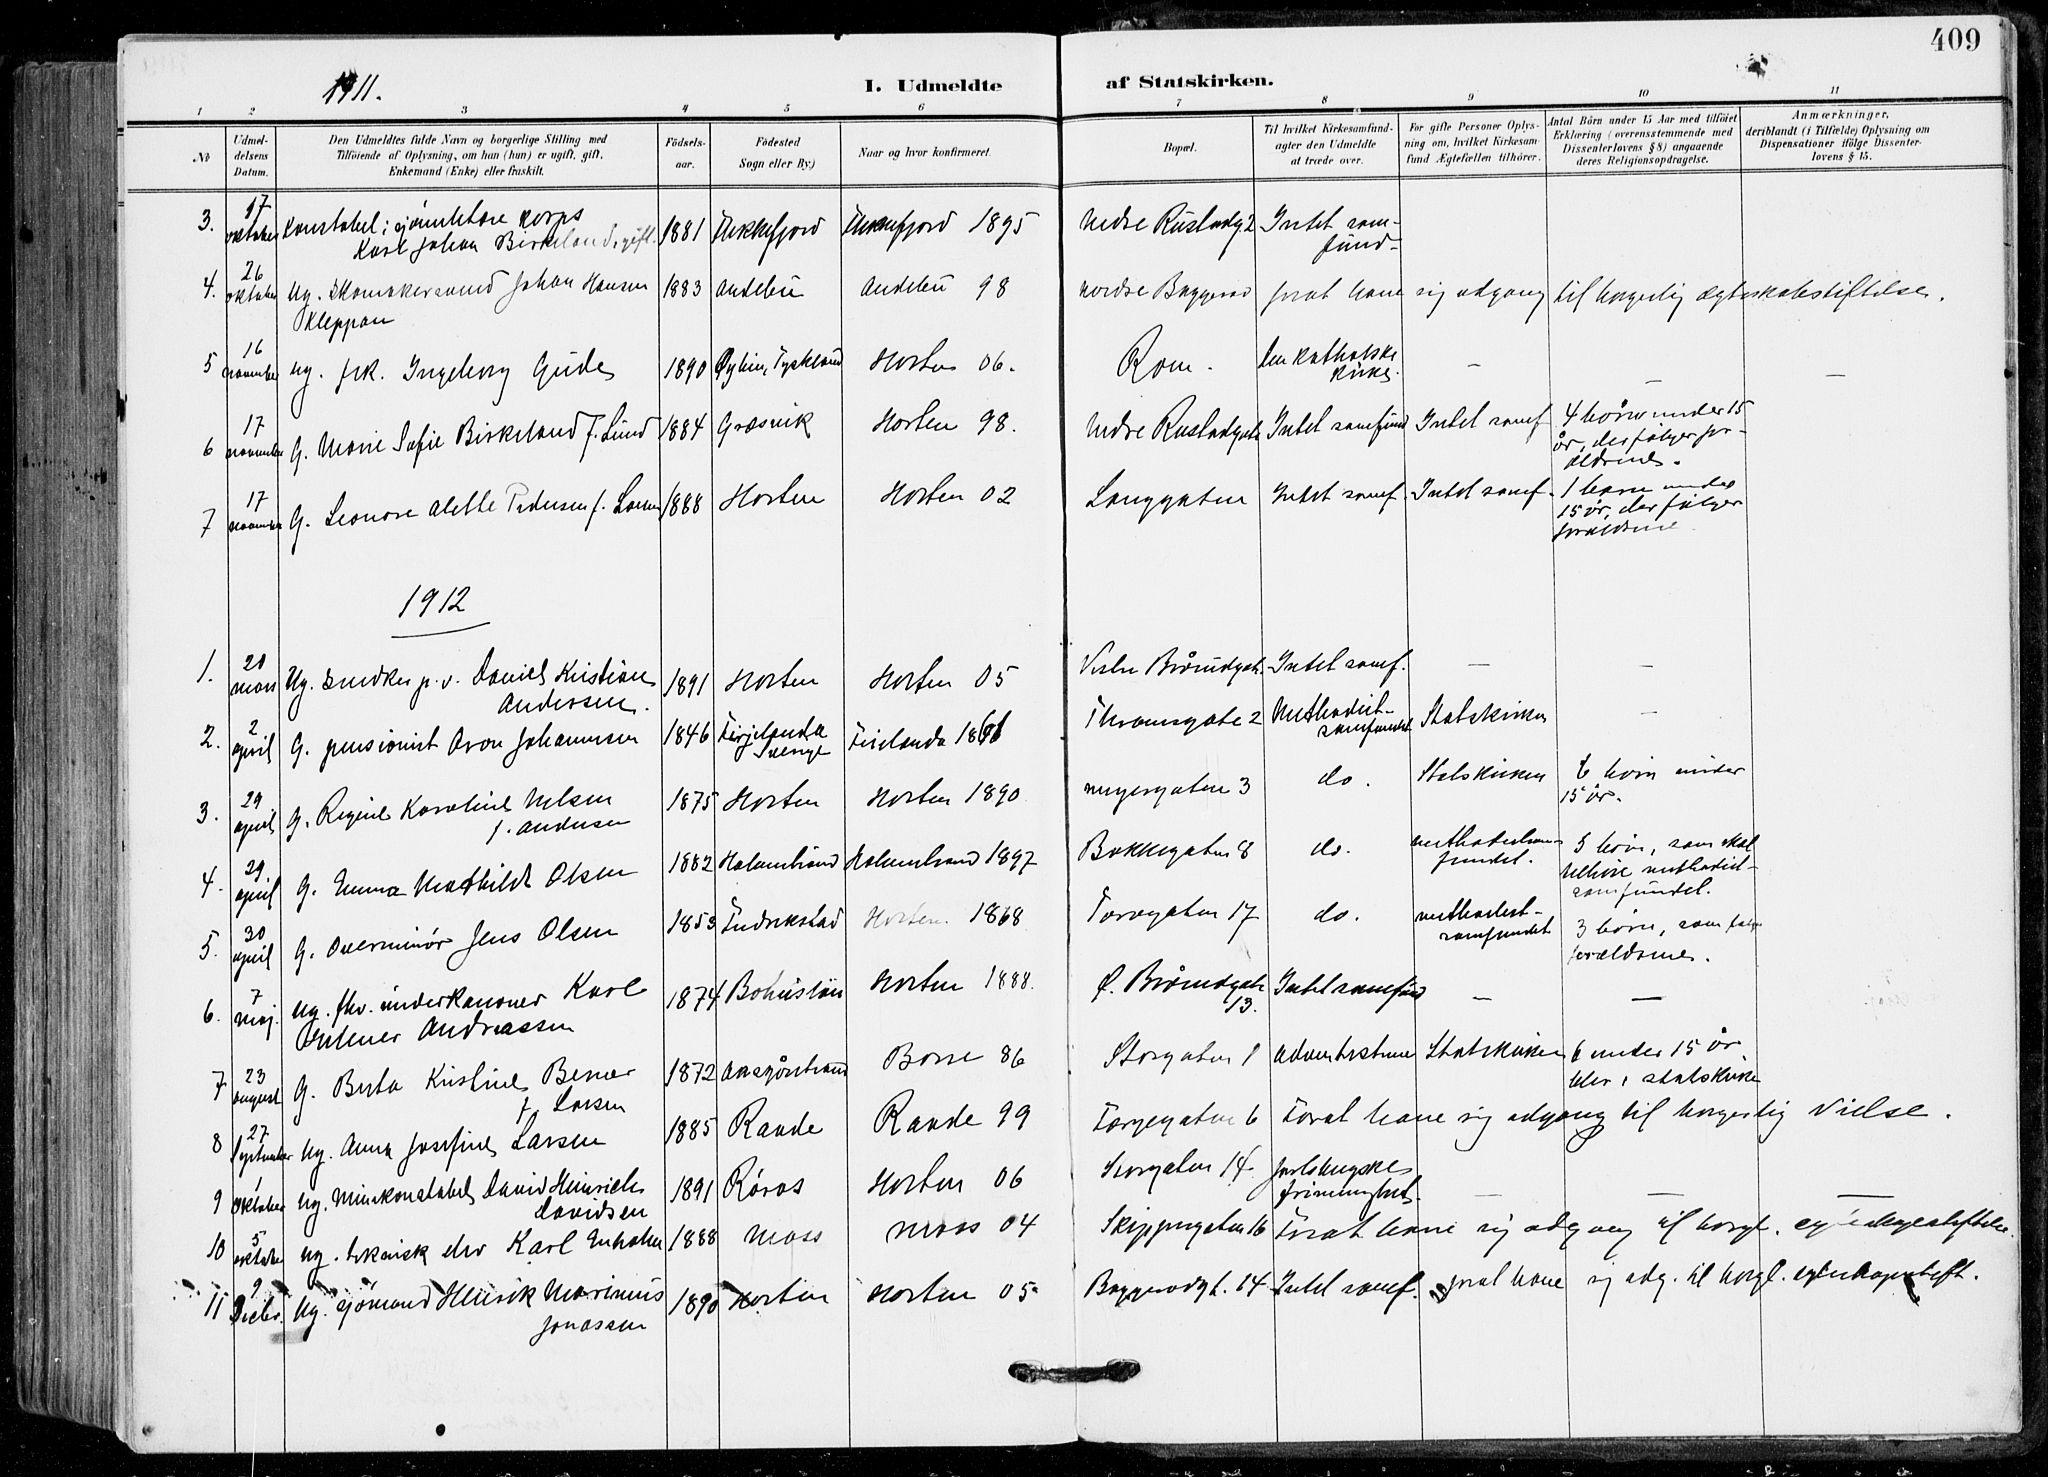 409
1911.
I. Udmeldte af Statskirken.
1 2 3 4 5 6 7 8 9 10 11
№
Udmel-
delsens
Datum.
Den Udmeldtes fulde Navn og borgerlige Stilling med
Tilföiende af Oplysning, om han (hun) er ugift, gift,
Enkemand (Enke) eller fraskilt.
Födsels-
aar.
Födested
Sogn eller By.)
Naar og hvor konfirmeret.
Bopæl.
Til hvilket Kirkesamfund-
agter den Udmeldte
at træde over.
For gifte Personer Oplys-
ning om, hvilket Kirkesam-
fund Ægtefællen tilhörer.
Antal Börn under 15 Aar med tilföiet
Erklæring (overensstemmende med
Dissenterlovens § 8) angaaende
deres Religionsopdragelse.
Anmærkninger,
deriblandt (i Tilfælde) Oplysning om
Dispensationer ifölge Dissenter-
lovens § 15.
3. 17 oktober Konstabel i sjømilitære korps
Karl Johan Birkeland, gift. 1881 Flekkefjord Flekkefjord 1895 Nedre Rustadg 2 Intet sam-
fund
4. 26 oktober Ug. Skomakersvend Johan Hansen
Kleppan 1883 Andebu Andebu 98 Nordre Baggerød forat have sig adgang til borgerlig ægteskabsstiftelse.
5 16 november Ug. frk. Ingeborg Gude 1890 Tyskland Horten 06. Rom. Den katholske
kirke. — — —
6 17 november G. Marie Sofie Birkeland f. Lund 1884 Græsvik Horten 98. Nedre Rustadgate Intet samfund Intet samf 4 børn under 15
år, der følger for-
ældrene.
7 17 november G. Leonore Alette Pedersen f. Larsen 1888 Horten Horten 02 Langgaten Intet samf. Intet samf. 1 barn under
15 år, der følger
forældrene
1912
1. 20 mars Ug. snedker p. v. Daniel Kristian
Andersen. 1891 Horten Horten 05 Vestre Brårudgate. Intet samf. — —
2. 2 april G. pensionist Aron Johannesen 1846 Färjelanda
Sverige Färjelanda 1861 Thranesgate 2 Methodist-
samfundet Statskirken —
3. 29 april G. Regine Karoline Nelsen
f. Andersen 1875 Horten Horten 1890 Meyersgaten 3 do. Statskirken 6 børn under
15 år.
4. 29. april G. Emma Mathilde Olsen 1882 Holmestrand Holmestrand 1897 Bakkegaten 8 do. methodistsam-
fundet. 5 børn, som skal
tilhøre methodist-
samfundet.
5. 30 april G. Overminør Jens Olsen 1853 Fredrikstad Horten 1868 Torvegaten 17 do. methodist-
samfundet 3 børn, som følger
forældrene.
6. 7 maj. Ug. fhv. underkanoner Karl
Andreassen 1874 Bohuslän Horten 1888. Ø. Brårudgate
13. Intet samfund — —
7 23 august G. Berta Kristine Berner
f. Larsen 1872 Aasgårdstrand Borre 86 Storgaten 1 Adventisterne Statskirken 6 under 15 år,
blir i statskirken
8 27 September Ug. Anna Josefine Larsen 1885 Raade Raade 99 Torvegaten 6 Forat have sig adgang til borgerlig Vielse.
9 1 oktober Ug. Minekonstabel David Hinrich
Davidsen 1891 Røros Horten 06 Storgaten 14. Jarlsbergske
frimenighet. — — —
10 5 oktober Ug. teknisk elev Karl 1888 Moss Moss 04 Skippergaten 16 Forat have sig adgang til borgl.
11 9 Decbr. Ug. sjømand Henrik Marinius
Jonassen 1890 Horten Horten 05 Baggerødgt. 14 Intet samf. forat have sig adg. til borgl.